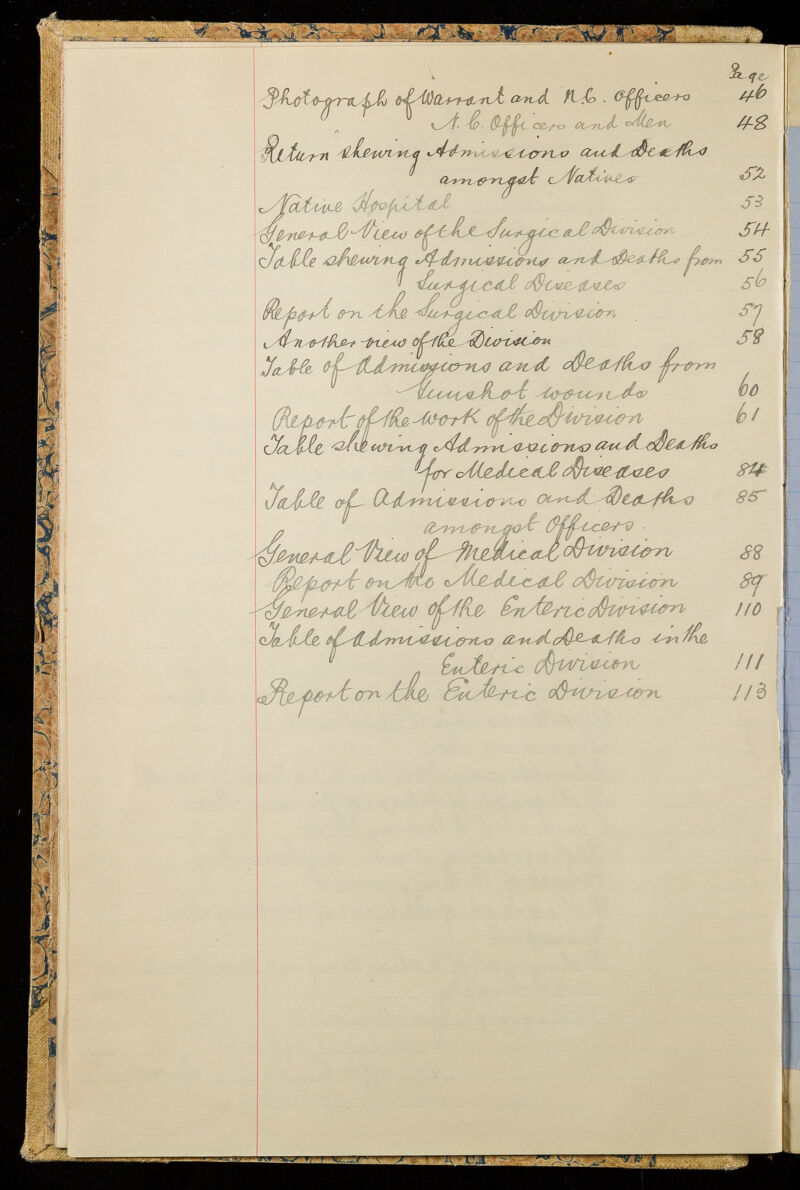 Page
Photograph of Warrant and N.C. Officers 46
" N.C. Officers and Men 48
Return shewing Admissions and Deaths
amongst Natives 52
Native Hospital 53
General View of the Surgical Division 54
Table shewing Admissions and Deaths from 55
Surgical Diseases 56
Report on the Surgical Division 57
Another view of the Division 58
Table of Admissions and Deaths from
Gunshot wounds 60
Report of the work of the Division 61
Table shewing Admissions and Deaths
for Medical Diseases 84
Table of Admissions and Deaths 85
amongst Officers.
General View of Medical Division 88
Report on the Medical Division 89
General View of the Enteric Division 110
Table of Admissions and Deaths in the
Enteric Division 111
Report on the Enteric Division 113